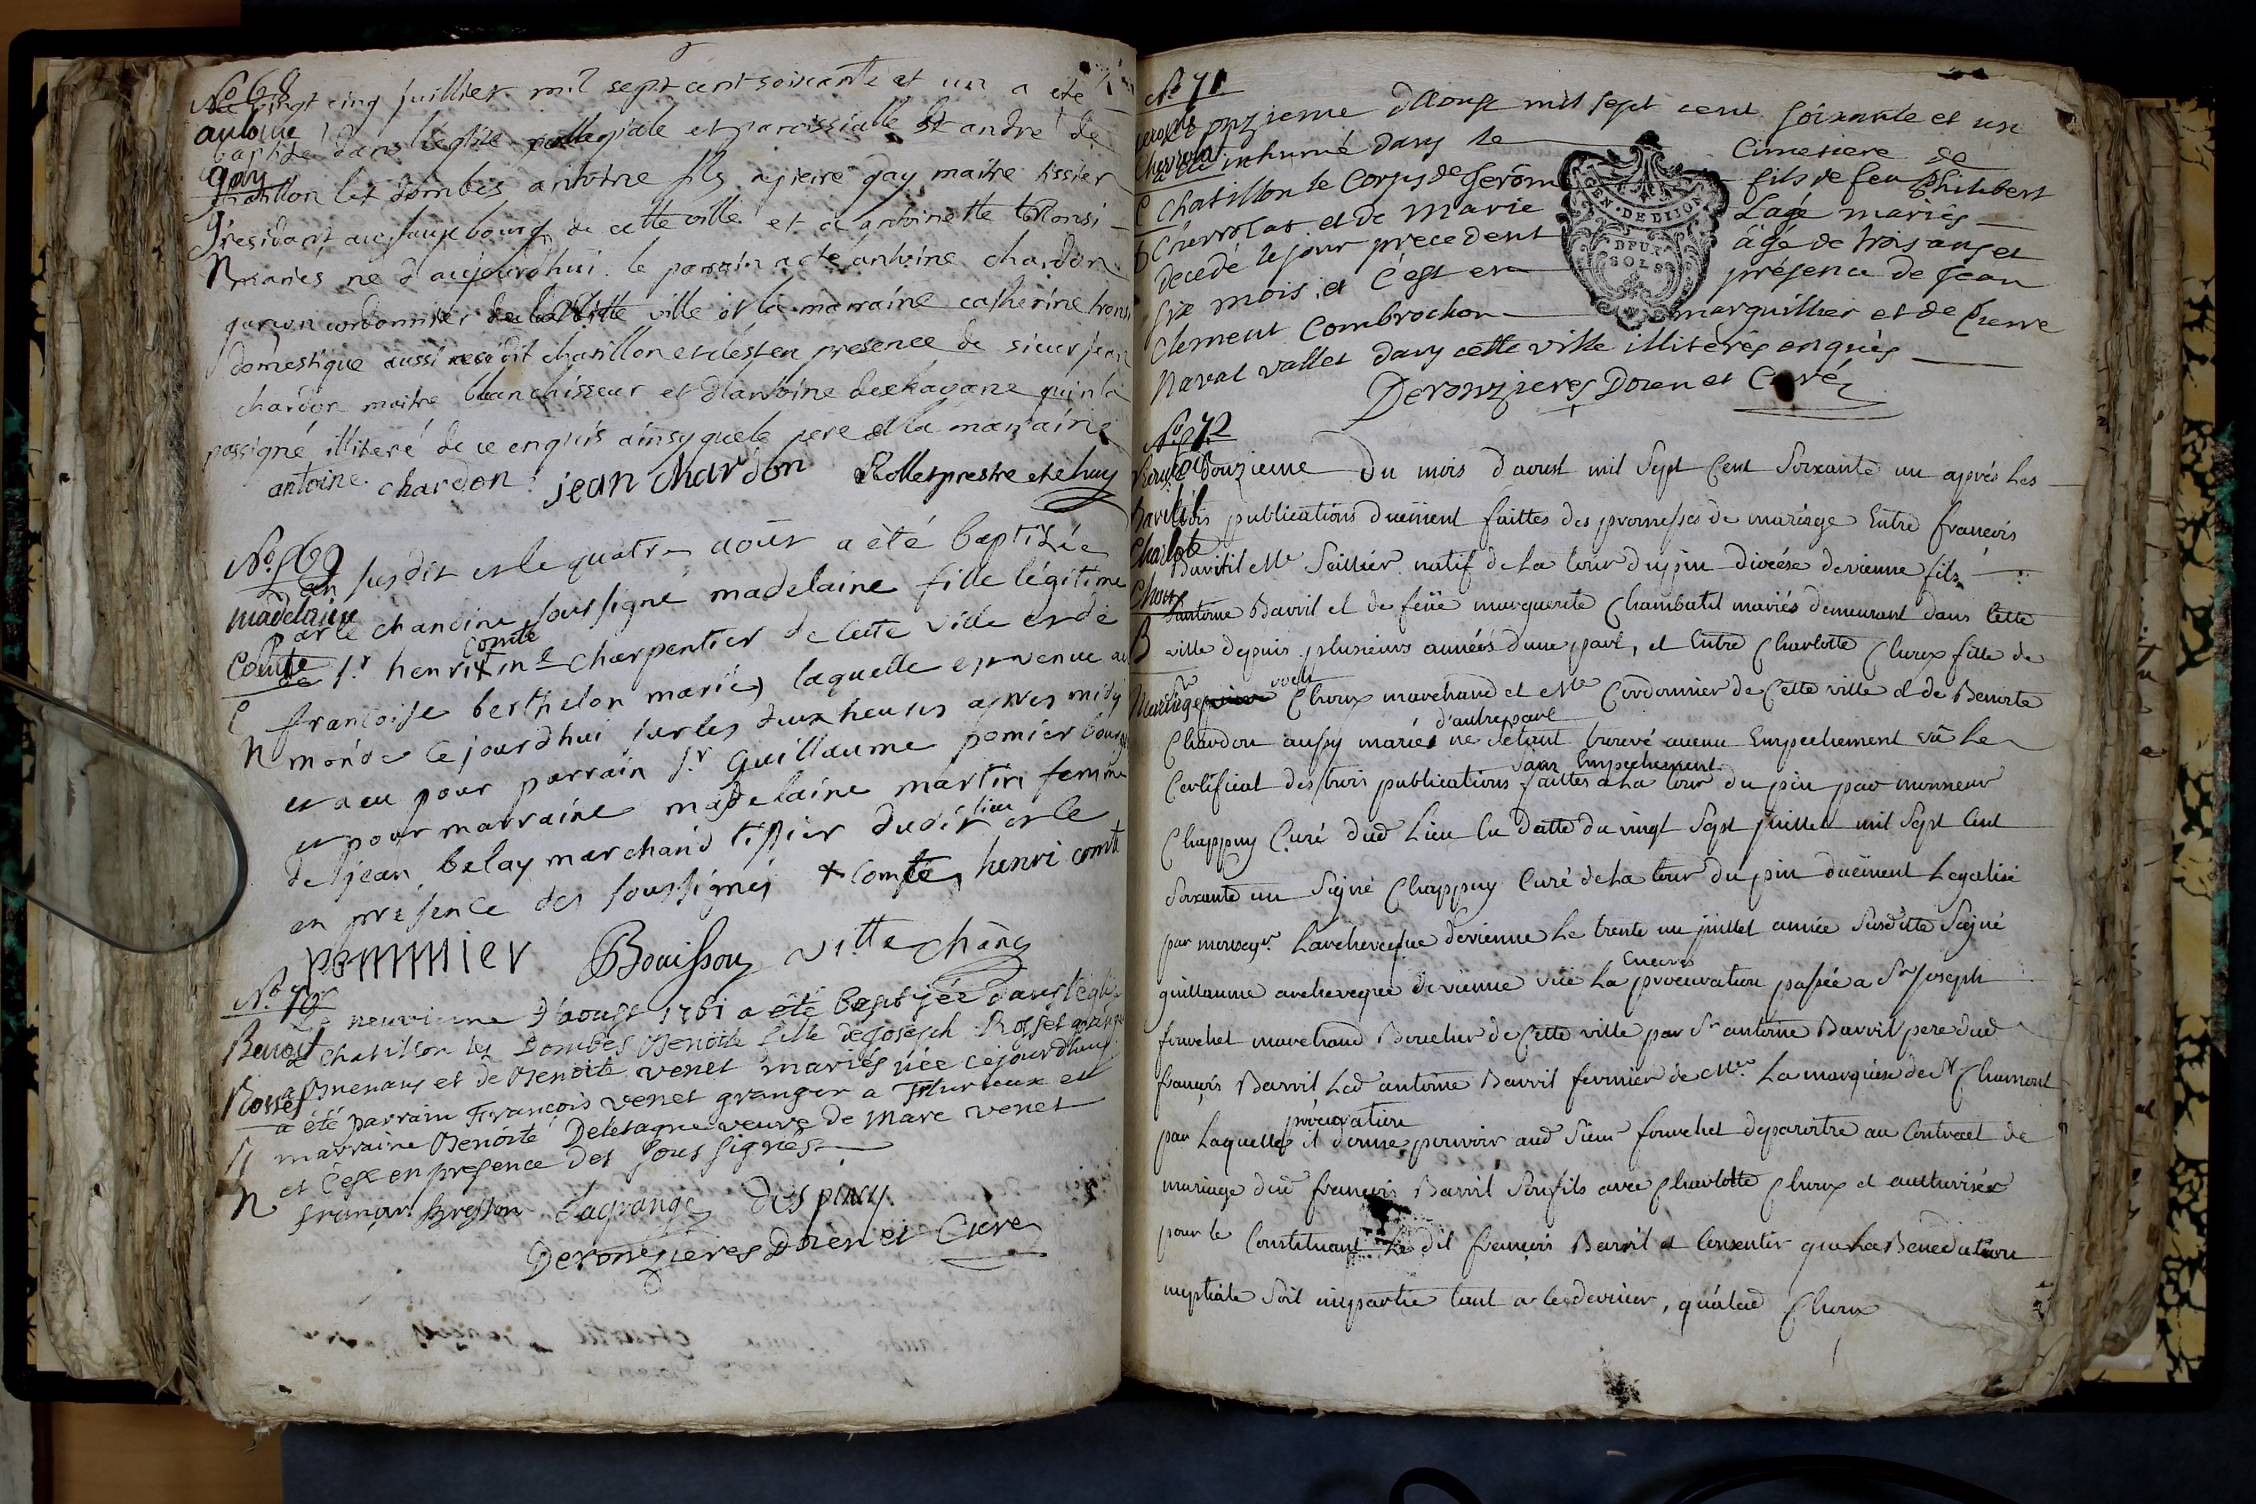 No 68
Le vingt cinq juillet mil sept cent soixante et un a été
antoine
baptisé dans l'eglise collegiale et paroissialle St andre de
gay
chatillon les dombes antoine fils a pierre gay maitre tissier
G
residant au fauxbourg de cette ville et a antoinette
N
mariés né d'aujourdhui. le parrain a eté antoine chardon
garçon cordonnier ville et la marraine catherine
domestique aussi chatillon et c'est en presence de sieur jean
chardon maitre blanchisseur et d'antoine qui n'a
passigné illiteré de ce enquis ainsy que le pere et la marraine
antoine chardon jean chardon Rollet prestre
No 69
L'an susdit et le quatre août a été baptisée
madelaine
par le chanoine soussigné madelaine fille légitime
Comte
Comte
de Sr henri x me charpentier de cette ville et de
C
francoise berthelon mariés, laquelle est venue au
N
monde ce jourdhui sur les deux heures apres midy
et a eu pour parrain Sr Guillaume pomier
et pour marraine madelaine martin femme
lieu
de jean belay marchand tissier dudit et le
en présence des soussignés x Comte, henri comte
pommier Bouisson
No 70
Le neuvieme d'aoust 1761 a été baptisée dans l'eglise
Benoit
de chatillon les Dombes Benoite fille de Joseph Rosset
Rosset
et de Benoite venet mariés née cejourdhuy
a été parrain François venet granger a Fleurieux et
R
marraine Benoite Delesagne veuve de Marc venet
et c'est en presence des sous signés
N
françois bresson Lagrange
Deronzieres Doien et Curé
No 71
L'onzieme d'Aoust mil sept cent soixante et un
Chevrolat
a été inhumé dans le cimetiere de
C
chatillon le corps de Jerôme fils de feu Philibert
Chevrolat et de Marie Lagé mariés
decedé le jour precedent âgé de trois ans et
GEN. DE DIJON
DEUX
SOLS
six mois. et c'est en présence de Jean
Clement Combrochon marguillier et de Pierre
Naval vallet dans cette ville illiterés enquis
Deronzieres Doien et Curé
No 72
Le Douzieme Du mois d'aoust mil sept cent soixante un après les
trois publications duëment faittes des promesses de mariage Entre françois
Charlote
Barritil Me Sellier natif de La tour dupin diocése de vienne fils
Choux
d'antoine Barril et de feüe marguerite Chambatil mariés demeurant dans Cette
B
ville depuis plusieurs années d'une part, et Entre Charlotte Choux fille de
Mariage
Choux marchand et Me Cordonnier de Cette ville et de Benoite
d'autre part
Chardon aussy mariés ne sétant trouvé aucun Empechement vû le
sans Empechement
Certificat des trois publications faittes a La tour du pin par monsieur
Chappuy Curé dud Lieu En datte du vingt sept juillet mil sept Cent
soixante un signé Chappuy Curé de La tour du pin duëment Legalisé
par monseigr. L'archeveque de vienne le trente un juillet année susditte signé
Encore
guillaume archeveque de vienne vüe La procuration passée a Sr Joseph
fouchet marchand Boucher de Cette ville par Sr antoine Barril pere dud
françois Barril Led antoine Barril fermier de Me La marquise de St Chamont
procuration
par Laquelle il donne pouvoir aud Sieur fouchet de paroitre au Contract de
mariage dud françois Barril son fils avec Charlotte Choux et authoriser
pour le Constituant Le dit françois Barril et Consentir que La Benediction
nuptiale soit impartie tant a ce dernier, qu'a lad Choux